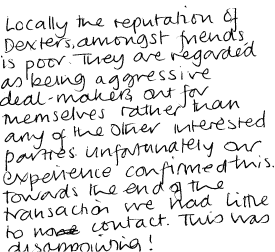 Locally the reputation of
Dexters, amongst friends
is poor. They are regarded
as being aggressive
deal-makers out for
themselves rather than
any of the other interested
parties. Unfortunately our
experience confirmed this.
Towards the end of the
transaction we had little
to no contact. This was
disappointing!